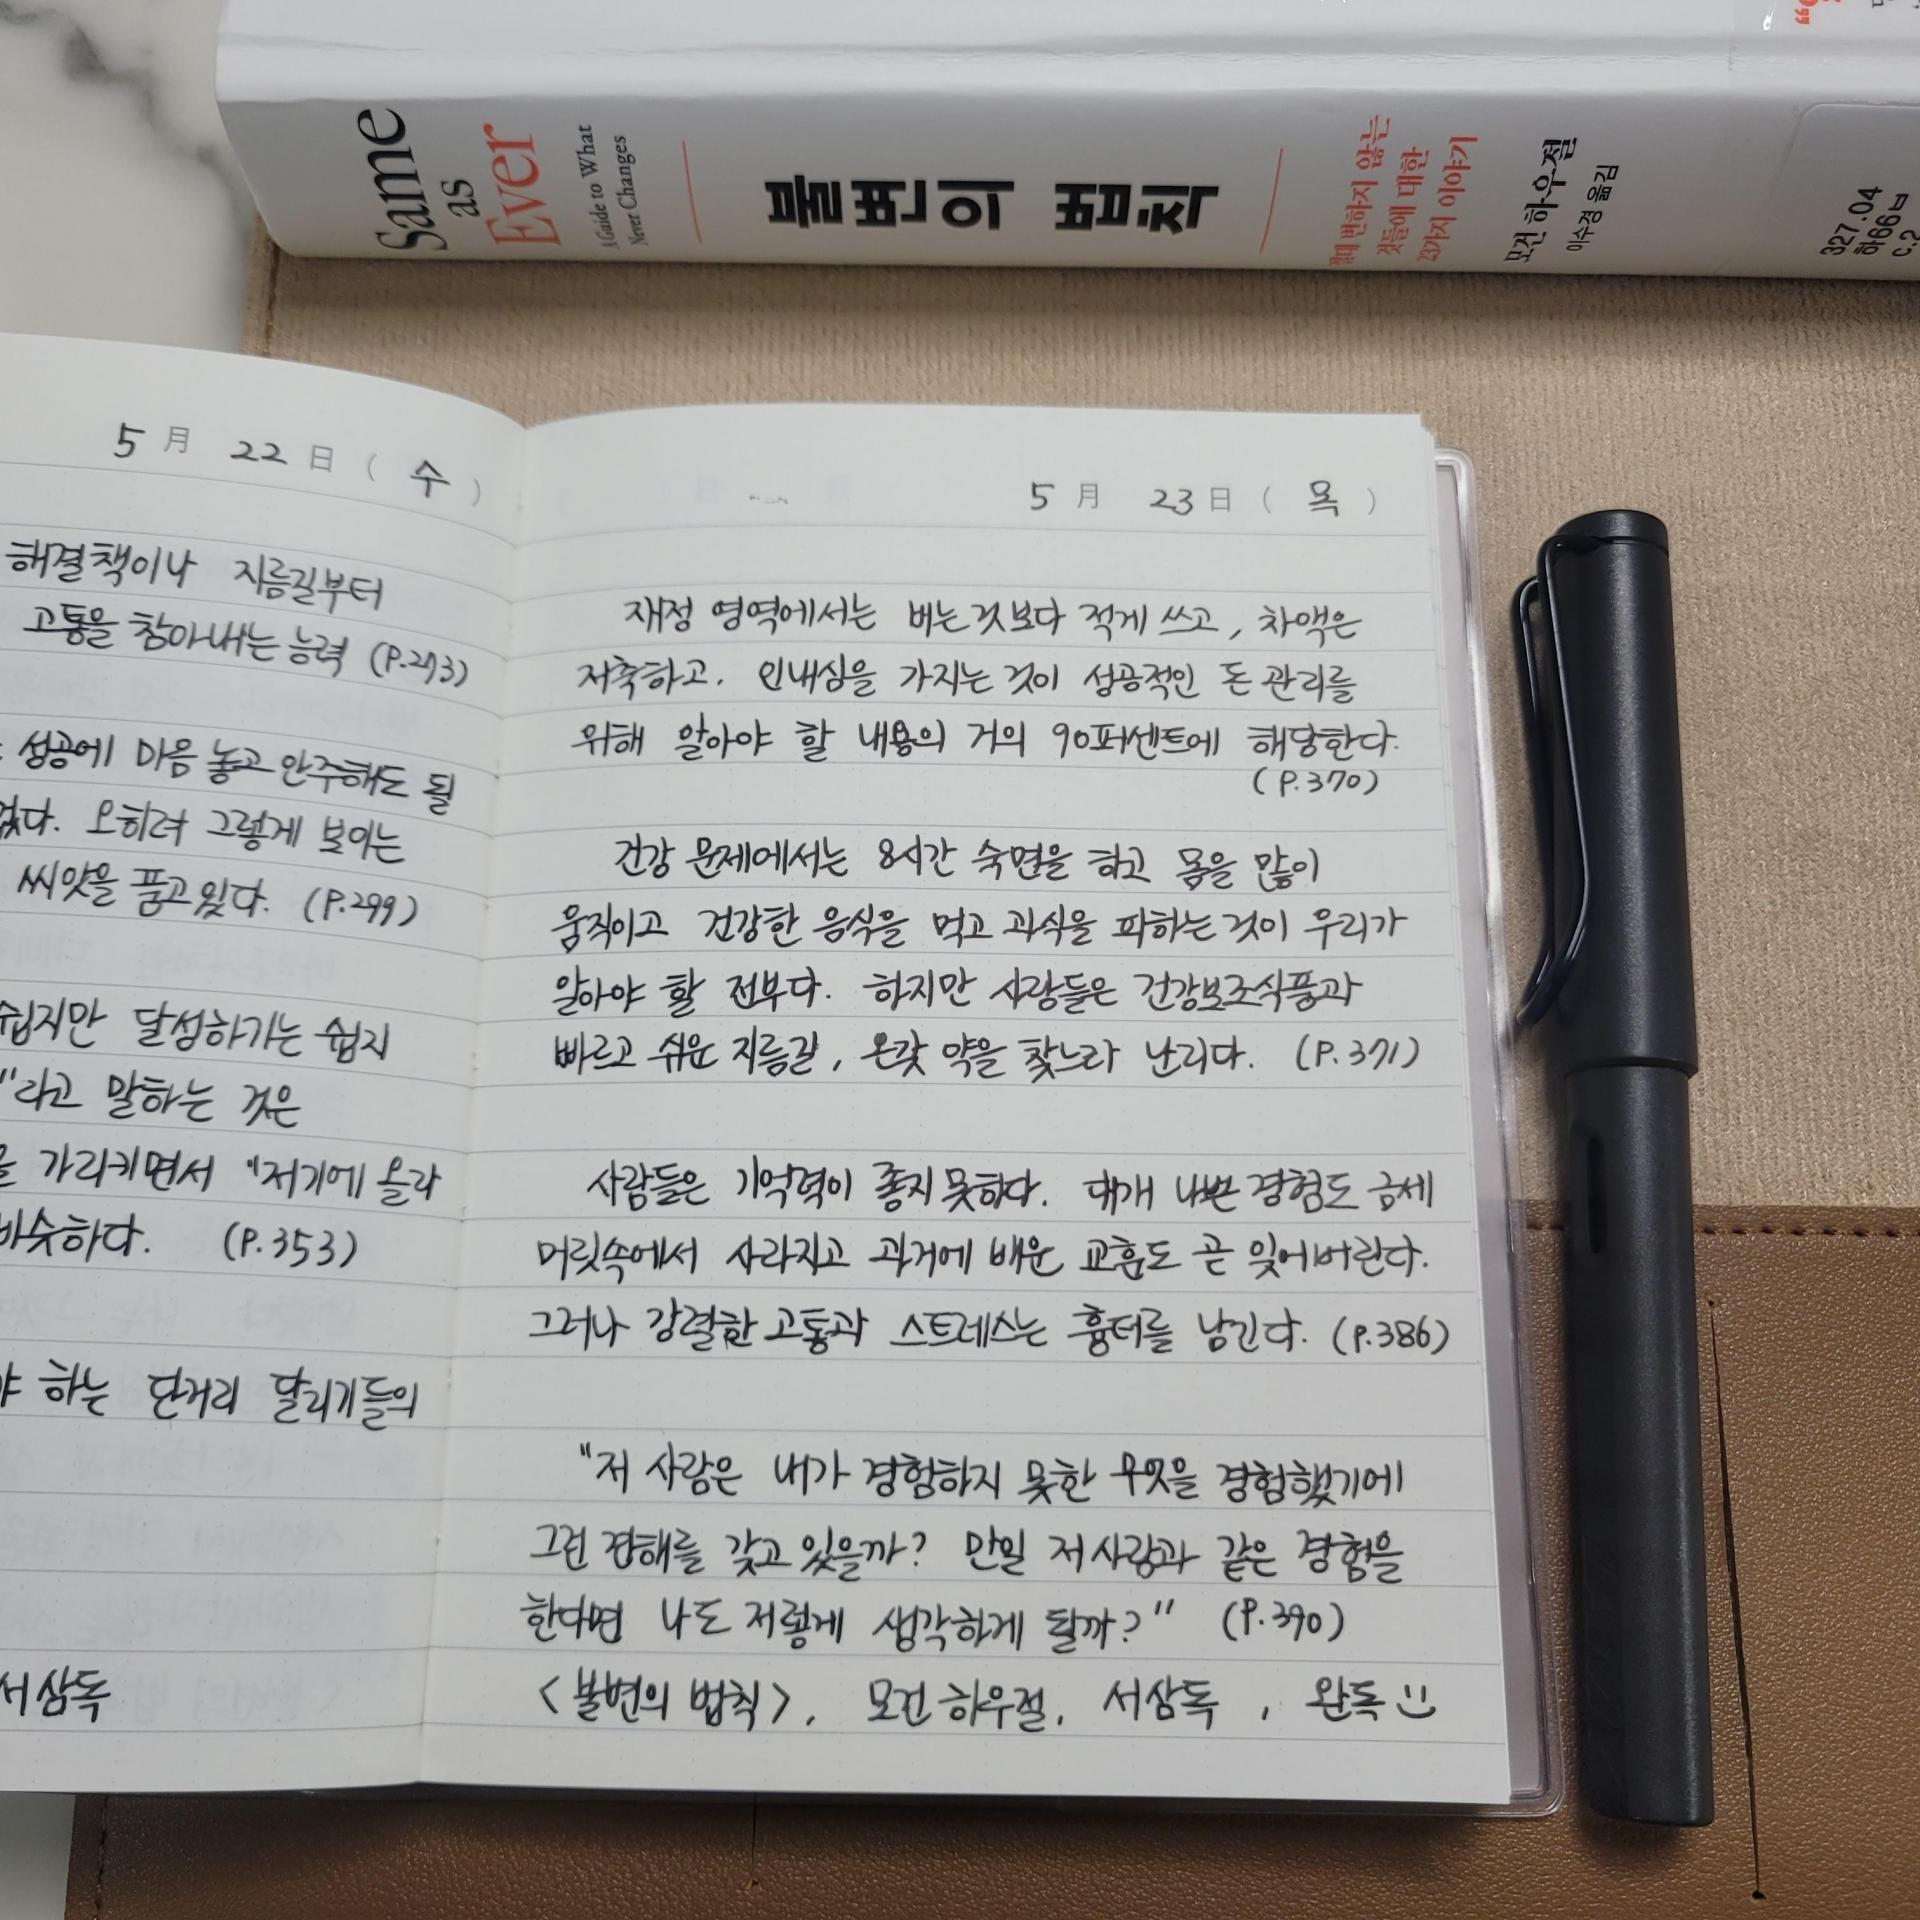 Same
as
Ever
A Guide to What
Never Changes
불변의 법칙
절대 변하지 않는
것들에 대한
23가지 이야기
모건 하우절
이수경 옮김
327.04
하66ㅂ
c.2
5 月 22 日 ( 수 )
해결책이나 지름길부터
고통을 참아내는 능력 (P.273)
성공에 마음 놓고 안주해도 될
없다. 오히려 그렇게 보이는
씨앗을 품고 있다. (P.299)
쉽지만 달성하기는 쉽지
"라고 말하는 것은
가리키면서 "저기에 올라
비슷하다. (P.353)
야 하는 단거리 달리기들의
서삼독
5 月 23 日 ( 목 )
재정 영역에서는 버는 것보다 적게 쓰고, 차액은
저축하고, 인내심을 가지는 것이 성공적인 돈 관리를
위해 알아야 할 내용의 거의 90퍼센트에 해당한다.
(P.370)
건강 문제에서는 8시간 숙면을 하고 몸을 많이
움직이고 건강한 음식을 먹고 과식을 피하는 것이 우리가
알아야 할 전부다. 하지만 사람들은 건강보조식품과
빠르고 쉬운 지름길, 온갖 약을 찾느라 난리다. (P.371)
사람들은 기억력이 좋지 못하다. 대개 나쁜 경험도 금세
머릿속에서 사라지고 과거에 배운 교훈도 곧 잊어버린다.
그러나 강렬한 고통과 스트레스는 흉터를 남긴다. (P.386)
"저 사람은 내가 경험하지 못한 무엇을 경험했기에
그런 견해를 갖고 있을까? 만일 저 사람과 같은 경험을
한다면 나도 저렇게 생각하게 될까?" (P.390)
<불변의 법칙>, 모건 하우절, 서삼독, 완독